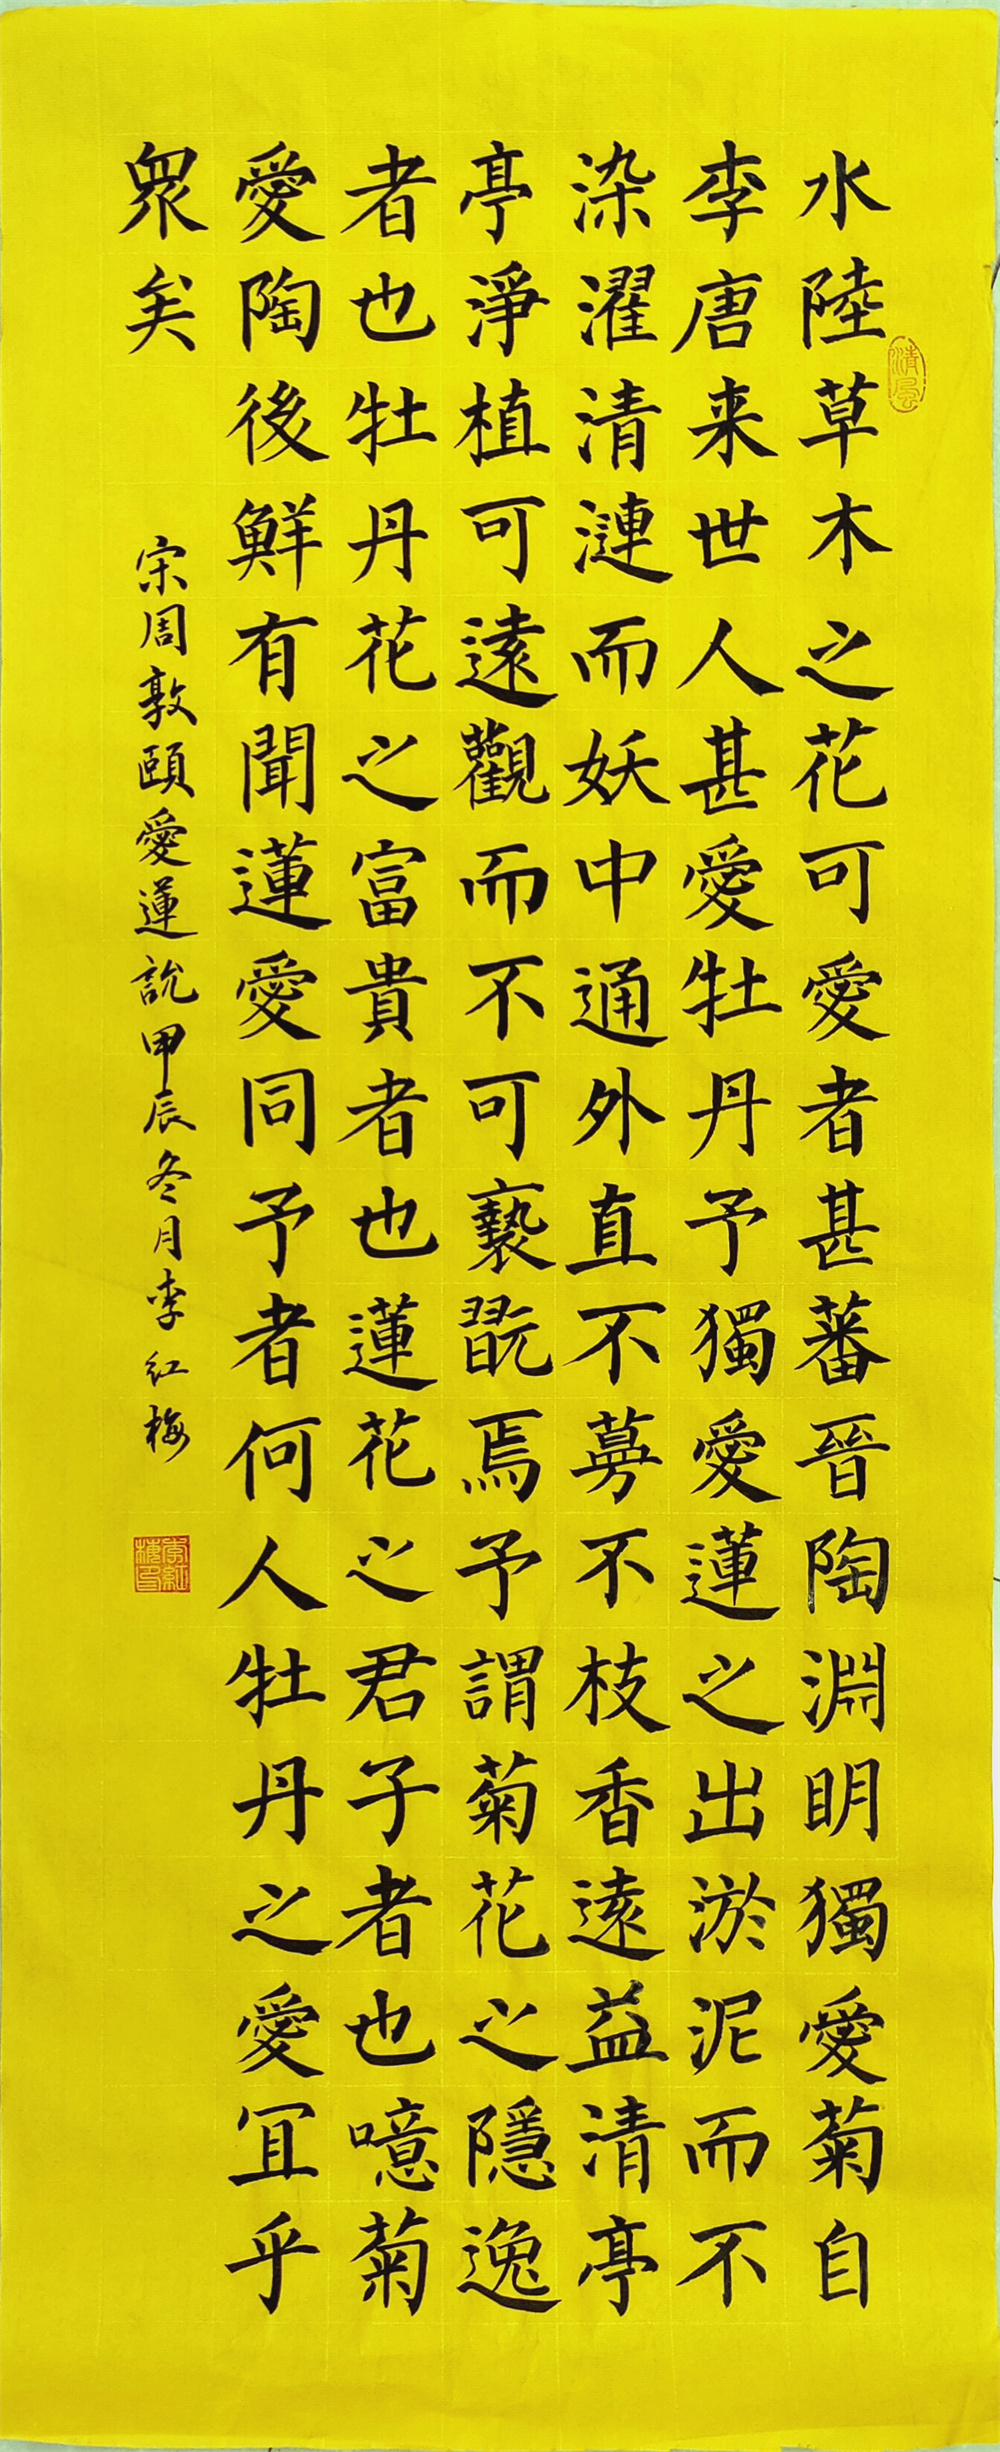 清風
水陸草木之花可愛者甚蕃晉陶淵眀獨愛菊自
李唐来世人甚愛牡丹予獨愛蓮之出淤泥而不
染濯清漣而妖中通外直不蔓不枝香遠益清亭
亭淨植可遠觀而不可褻翫焉予謂菊花之隱逸
者也牡丹花之富貴者也蓮花之君子者也噫菊
愛陶後鮮有聞蓮愛同予者何人牡丹之愛冝乎
眾矣
宋周敦頤愛蓮說甲辰冬月李红梅
李紅梅印